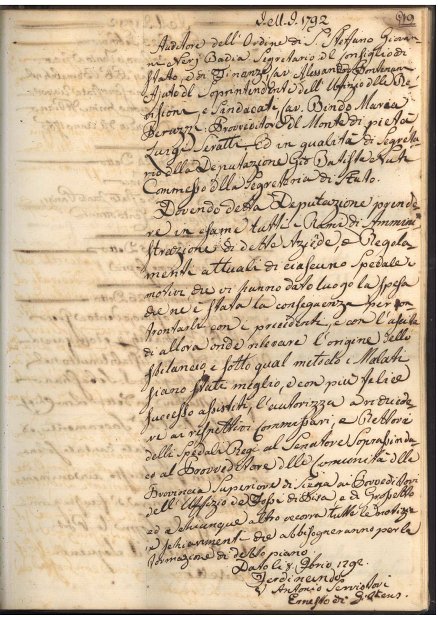 dell'A. 1792
Auditore dell'Ordine di S. Stefano Giovan
ni Neri Badia Segretario del Consiglio di
Stato, e di Finanze Cav. Alessandro Pontenani
Ajuto del Soprintendente dell'Ufizio delle Re
visioni, e Sindacati Cav. Bindo Maria
Peruzzi Provveditore del Monte di pietà
Luigi Seratti, ed in qualità di Segreta
rio della Deputazione Gio Batista Nuti
Commesso della Segreteria di Stato.
Dovendo detta Deputazione prende
re in esame tutti i Rami di Ammini
strazione di dette Aziende e Regola
menti attuali di ciascuno Spedale i
motivi che vi hanno dato luogo la spesa
che ne è stata la conseguenza per con
frontarli con i precedenti, e con l'
di allora onde rilevare l'origine dello
sbilancio, e sotto qual metodo i Malati
siano stati meglio, e con più felice
successo assistiti, l'autorizza a richiede
re ai respettivi Commissari, e Rettori
delli Spedali Regi al Senatore Soprassinda
co al Provveditore delle Comunità della
Provincia Superiore di Siena ai Provveditori
dell'Ufizio de Fossi di Pisa, e di Grosseto
ed a chiunque altro occorra tutte le notizie
e schiarimenti che abbisogneranno per la
formazione di detto piano
Dato li 8. 9brio 1792.
Ferdinando
Antonio Serristori
Ernesto di Gilkens.